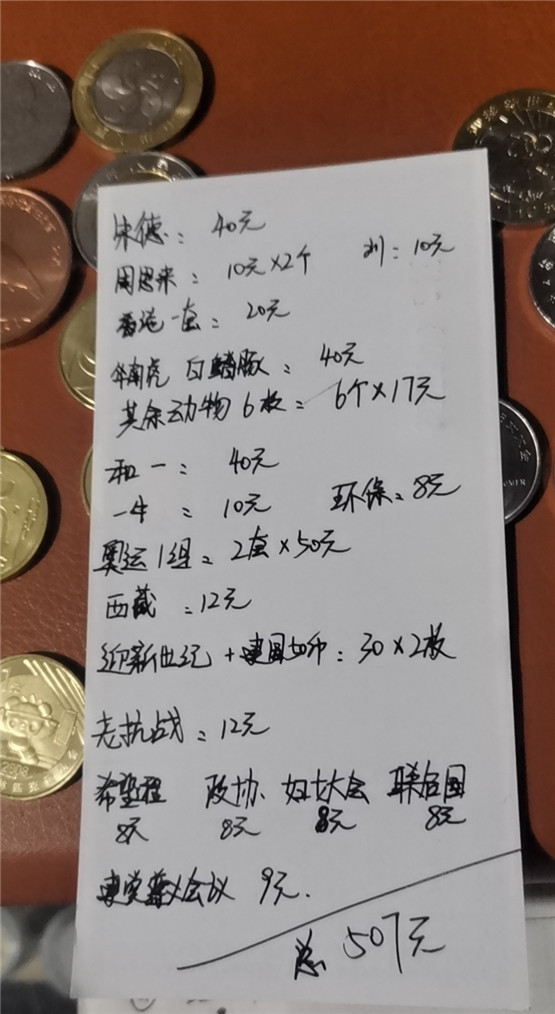 朱德：40元
周恩来：10元×2个 刘：10元
香港一套：20元
华南虎 白鳍豚：40元
其余动物6枚：6个×17元
和一：40元
一牛：10元 环保：8元
奥运1组：2套×50元
西藏：12元
迎新世纪+建国50币：30×2枚
老抗战：12元
希望程 政协 妇女大会 联合国
8元 8元 8元 8元
建党 会议 9元.
总 507元